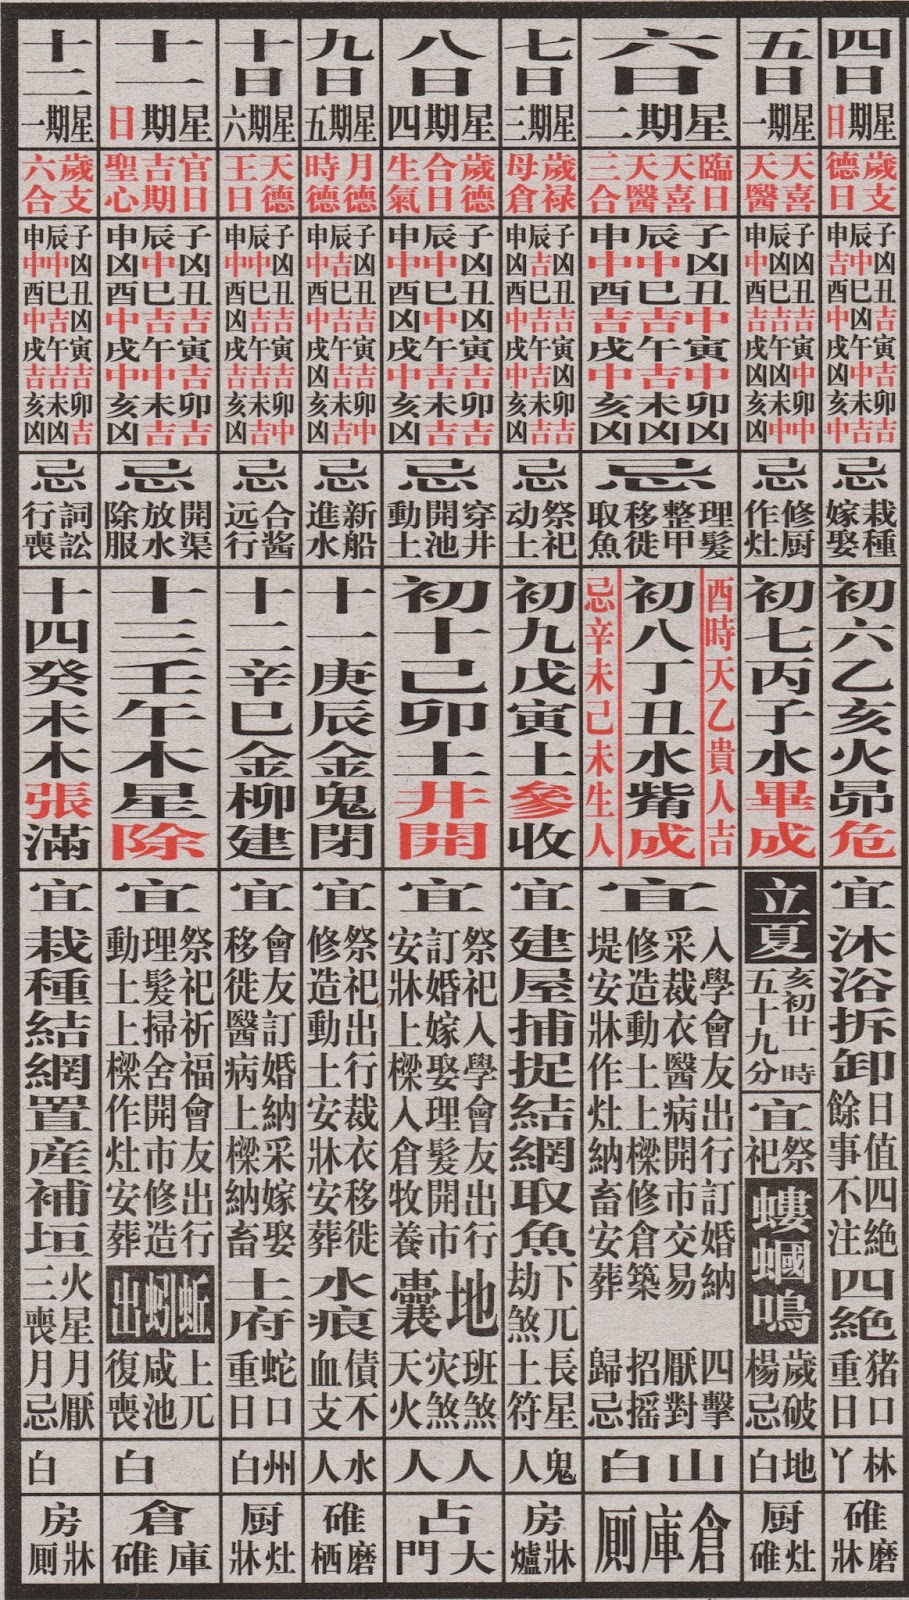 四日
星期日
歲支
德日
子辰申
凶中吉
丑巳酉
吉凶中
寅午戌
吉中凶
卯未亥
吉吉中
忌
栽種
嫁娶
初六乙亥火昴危
宜
沐浴拆卸
日值四絶
餘事不注
四絶
猪口
重日
林丫
碓
磨牀
五日
星期一
天喜
天醫
子辰申
凶凶中
丑巳酉
吉吉吉
寅午戌
中凶凶
卯未亥
中中凶
忌
修厨
作灶
初七丙子水畢成
立夏
亥初廿一時
五十九分
宜
祭祀
螻蟈鳴
歲破
楊忌
地白
厨
灶碓
六日
星期二
臨日
天喜
天醫
三合
子辰申
凶中中
丑巳酉
中吉吉
寅午戌
中吉中
卯未亥
凶凶凶
忌
理髮
整甲
移徙
取魚
酉時天乙貴人吉
初八丁丑水觜成
忌辛未己未生人
宜
入學會友出行訂婚納
采裁衣醫病開市交易
修造動土上樑修倉築
堤安牀作灶納畜安葬
四擊
厭對
招摇
歸忌
山白
倉庫厠
七日
星期三
歲禄
母倉
子辰申
凶吉凶
丑巳酉
吉吉中
寅午戌
凶吉中
卯未亥
吉吉凶
忌
祭祀
动土
初九戊寅土參收
宜
建屋捕捉結網取魚
下兀
劫煞
長星
土符
鬼人
房
牀爐
八日
星期四
歲德
合日
生氣
子辰申
凶中中
丑巳酉
凶中凶
寅午戌
吉吉中
卯未亥
吉吉凶
忌
穿井
開池
動土
初十己卯土井開
宜
祭祀入學會友出行
訂婚嫁娶理髮開市
安牀上樑入倉牧養
地囊
班煞
灾煞
天火
人人
占
大門
九日
星期五
月德
時德
子辰申
凶吉中
丑巳酉
凶吉中
寅午戌
吉吉凶
卯未亥
中吉凶
忌
新船
進水
十一庚辰金鬼閉
宜
祭祀出行裁衣移徙
修造動土安牀安葬
水痕
債不
血支
水人
碓
磨栖
十日
星期六
天德
王日
子辰申
凶中中
丑巳酉
吉吉凶
寅午戌
吉吉吉
卯未亥
中吉凶
忌
合酱
远行
十二辛巳金柳建
宜
會友訂婚納采嫁娶
移徙醫病上樑納畜
土府
蛇口
重日
州白
厨
灶牀
十一
星期日
官日
吉期
聖心
子辰申
凶中凶
丑巳酉
吉吉凶
寅午戌
吉中中
卯未亥
吉吉凶
忌
開渠
放水
除服
十三壬午木星除
宜
祭祀祈福會友出行
理髮掃舍開市修造
動土上樑作灶安葬
蚯蚓出
上兀
咸池
復喪
白
倉
庫碓
十二
星期一
歲支
六合
子辰申
凶中中
丑巳酉
凶吉中
寅午戌
吉吉吉
卯未亥
吉凶凶
忌
詞訟
行喪
十四癸未木張滿
宜
栽種結網置産補垣
火星
三喪
月厭
月忌
白
房
牀厠